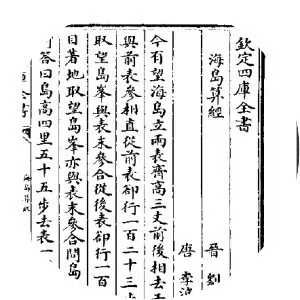 欽定四庫全書
海島算經
晉 劉
唐 李淳
今有望海島立兩表齊高三丈前後相去
與前表參相直從前表却行一百二十三步
取望島峯與表末參合從後表却行一百
目著地取望島峯亦與表末參合問島
答曰島高四里五十五步去表一
全書
海島算經